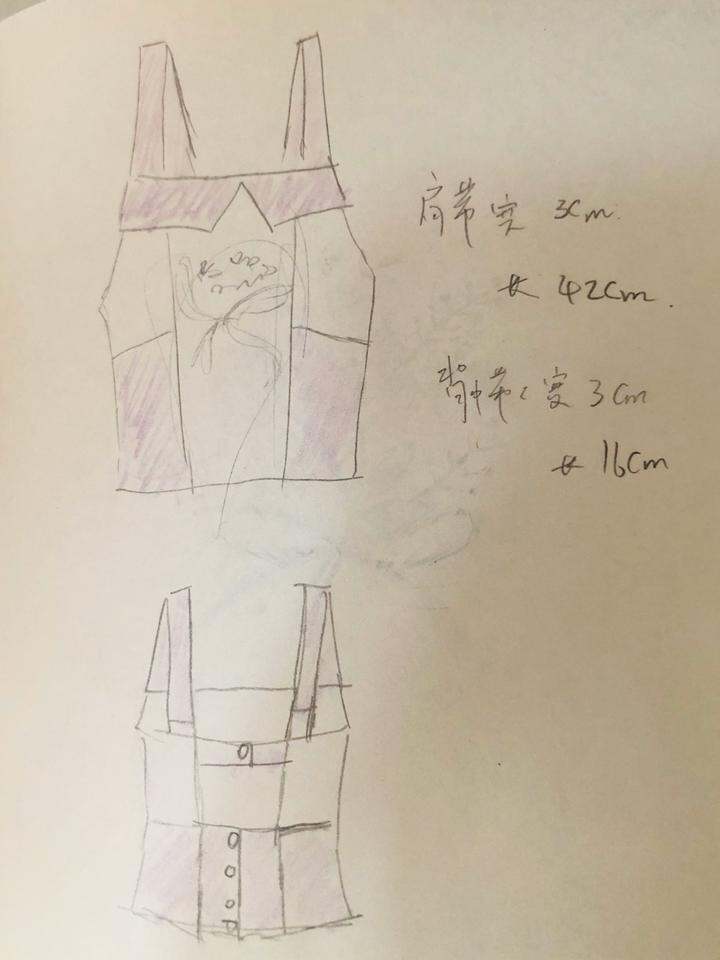 肩带宽 3cm.
长 42cm.
背中带 宽 3cm
长 16cm